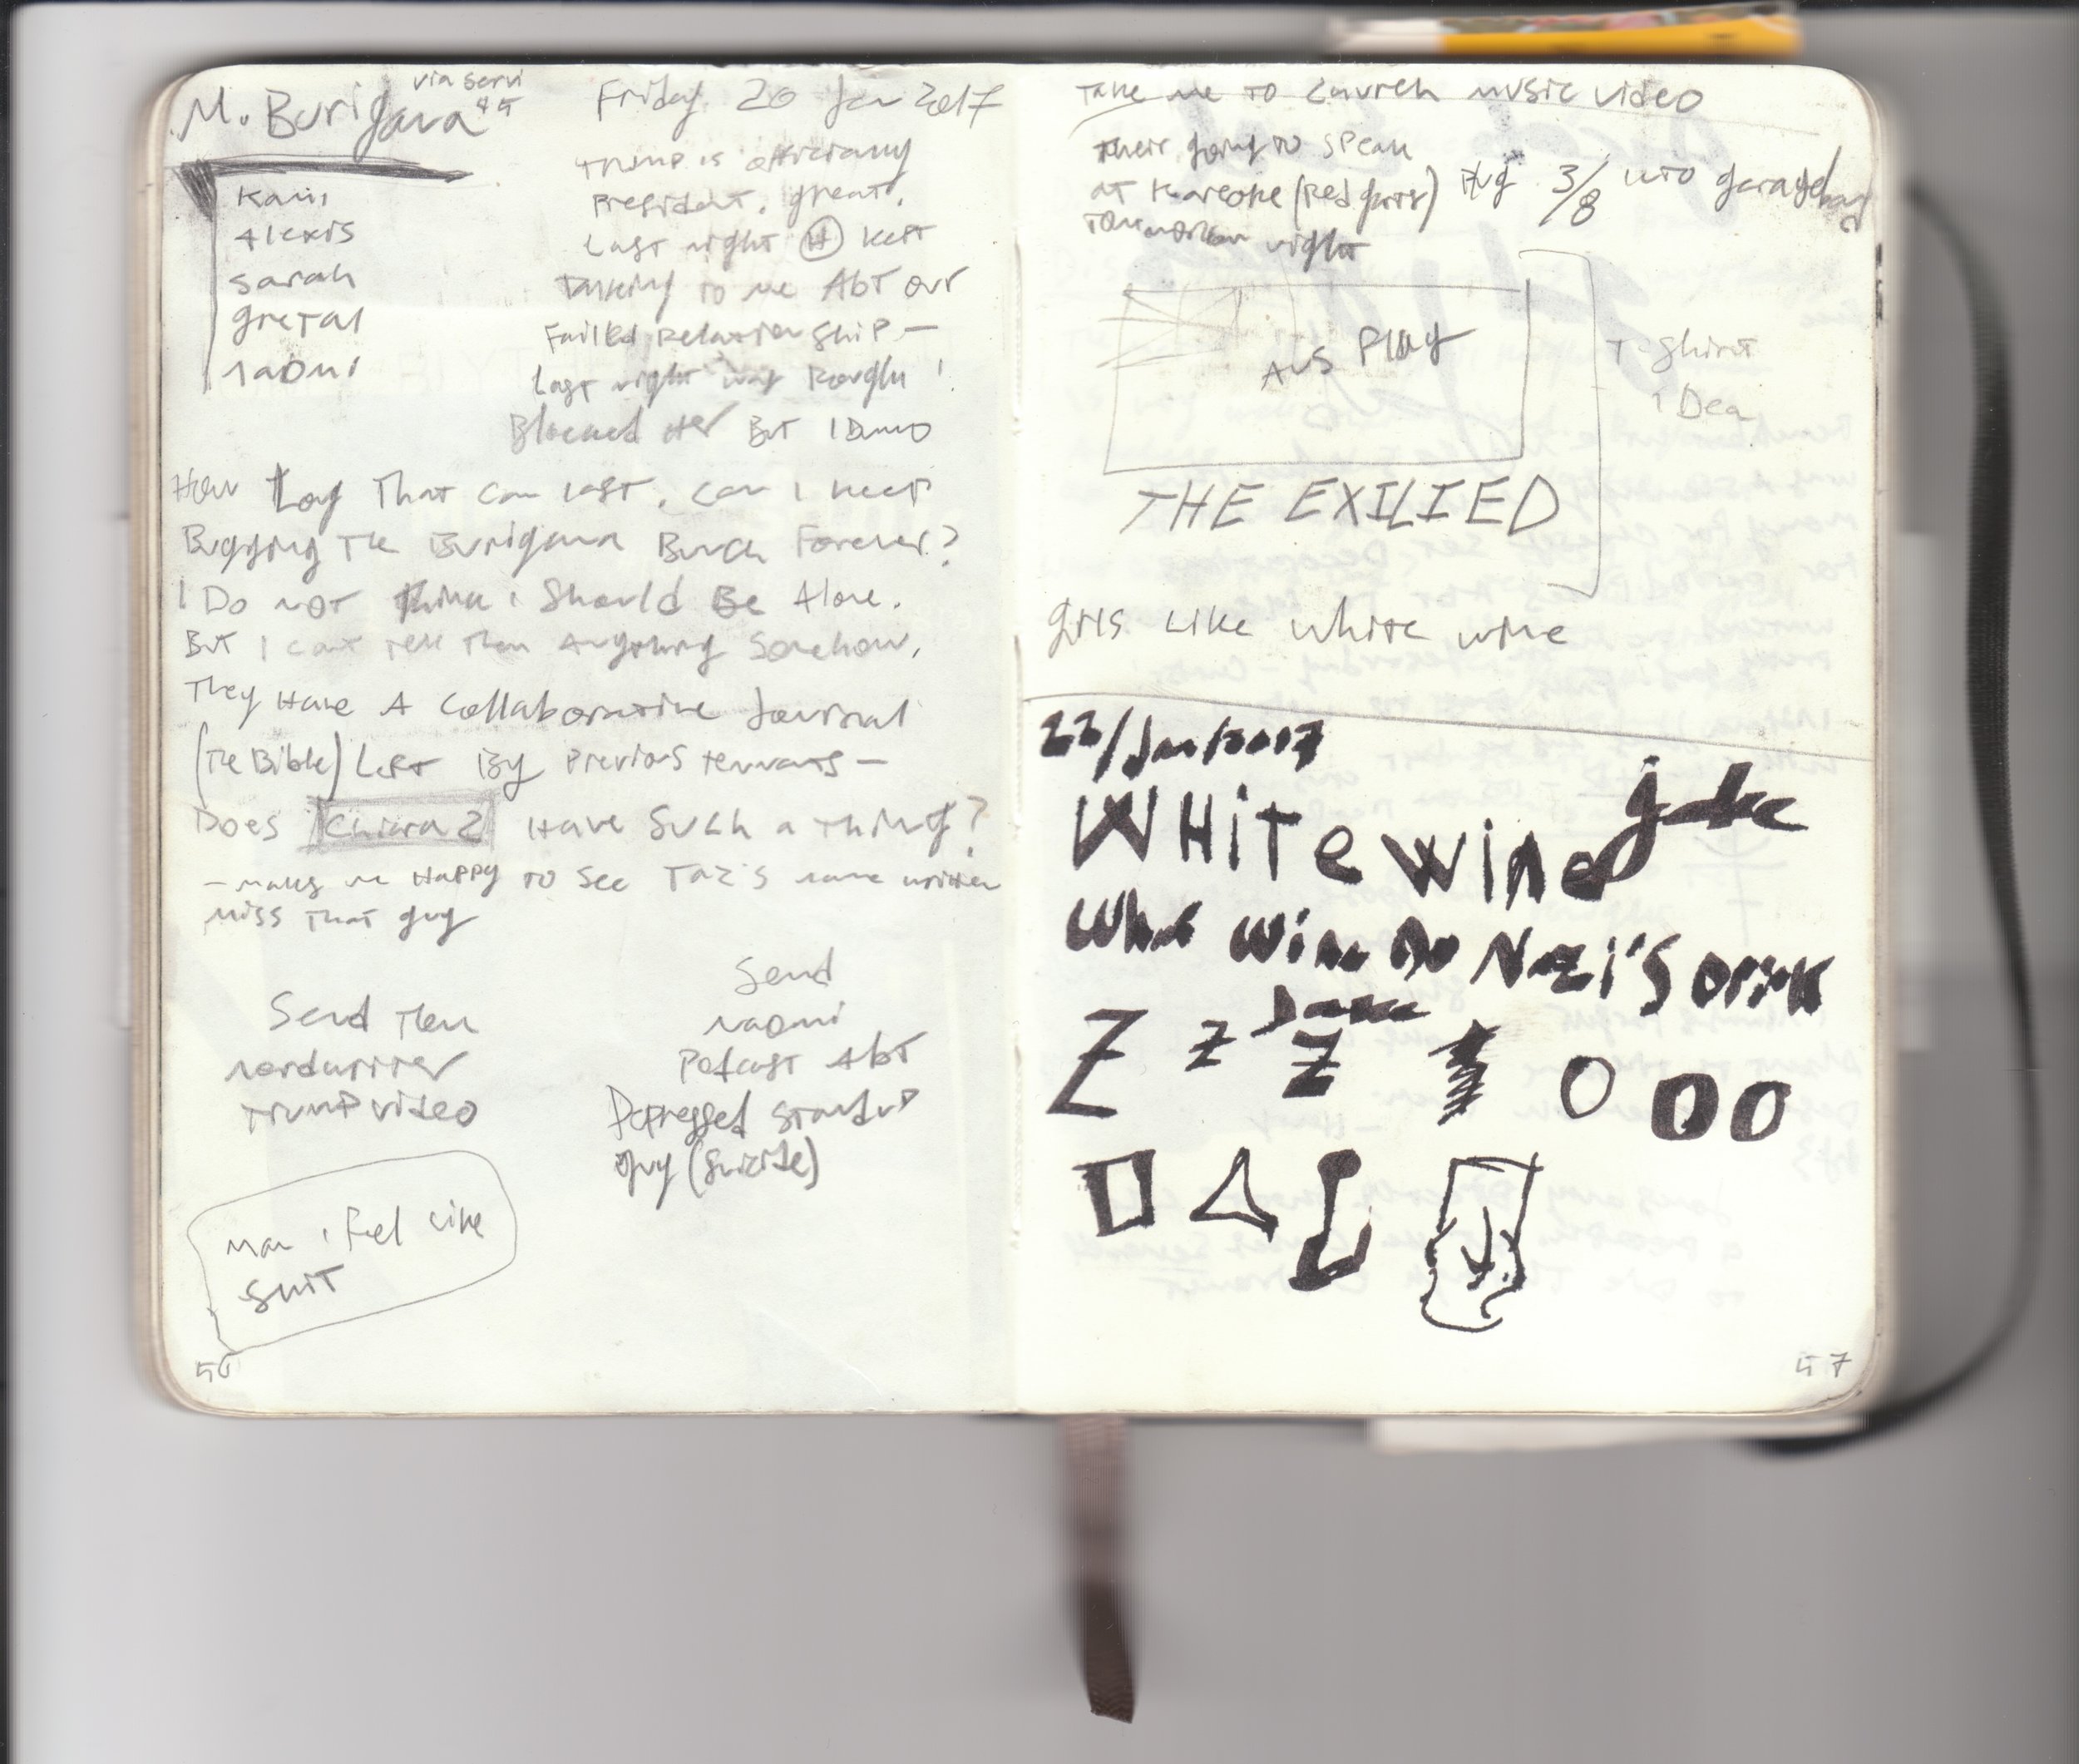 M. Burigana
via servi
45
Kari
Alexis
Sarah
gretal
naomi
Friday 20 Jan 2017
Trump is officially
President. great.
Last night H kept
Talking to me Abt our
Failed Relationship —
last night was Rough!
Blocked Her But I Dunno
How Long That can last. can I keep
Bugging The Burigana Bunch Forever?
I Do not Think i Should Be Alone.
But I can't tell Them Anything Somehow.
They Have A Collaborative Journal
(The Bible) Left By Previous tennants —
Does Chiara 2 Have Such a Thing?
— makes me Happy to See Taz's name written
miss That guy
Send Them
nerdwriter
Trump video
Send
naomi
Podcast Abt
Depressed Standup
guy (Suicide)
man i feel like
shit
56
Take me to Church music video
Their going to speak
at Kareoke (Red garter)
Tomorrow night
3/8 into garagebag
AUS Flag
T-Shirt
iDea
THE EXILIED
girls Like white wine
22/Jan/2017
White wine Joke
What wine Do Nazi's Drink
Z z Z O O O
57